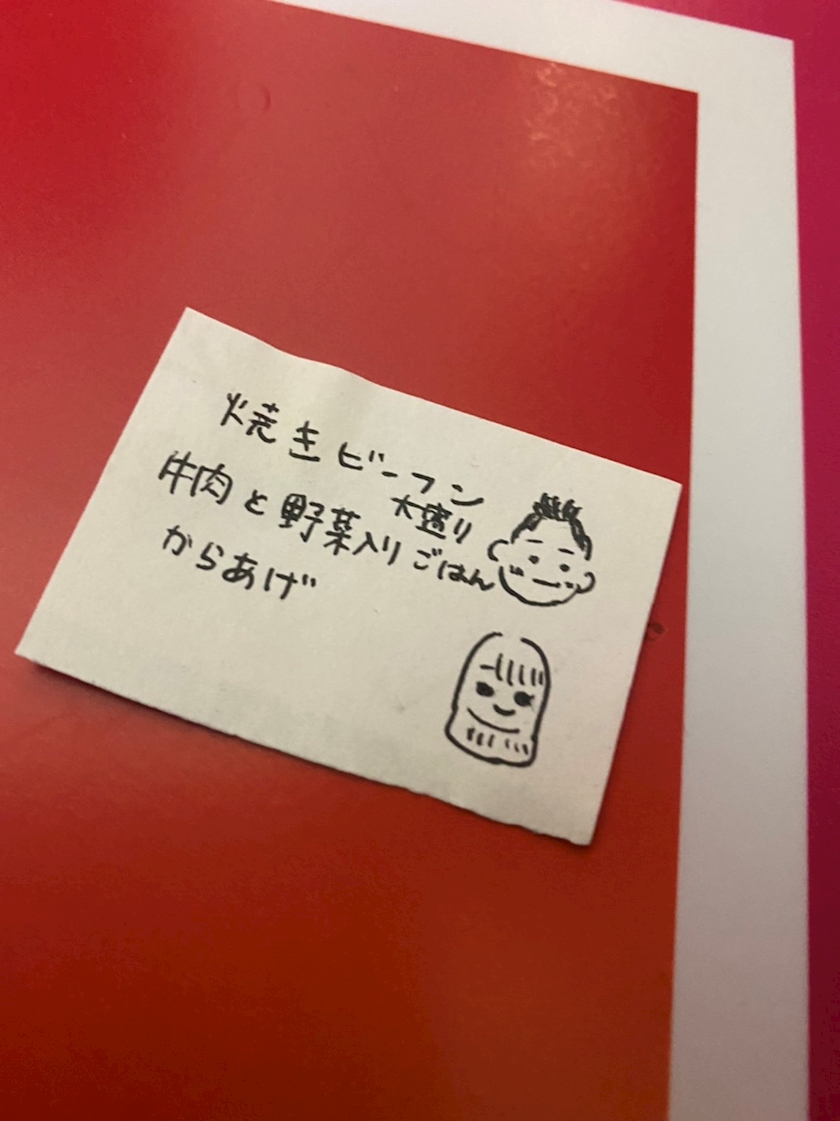 焼きビーフン
大盛り
牛肉と野菜入りごはん
からあげ